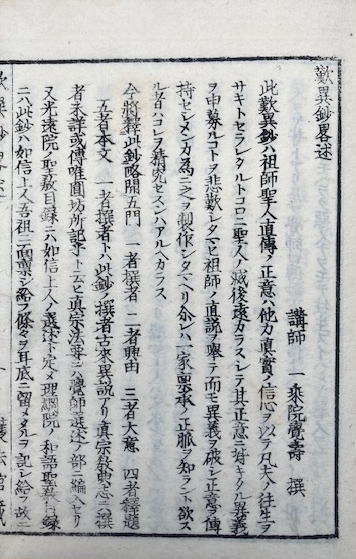 歎異鈔畧述
講師 一乗院覺壽 撰
此歎異鈔ハ祖師聖人直傳ノ正意ハ他力真實ノ信心ヲ以テ凡夫ノ往生ヲ
サキトセラレタルトコロニ聖人ノ滅後遠カラスシテ其正意ニ背キタル異義
ヲ申募ルコトヲ悲歎シタマヒ祖師ノ直説ヲ擧テ而モ異義ヲ破シ正意ヲ傳
持セシメンカ為ニ之ヲ製作シタマヘリ分レハ一家禀承ノ正脈ヲ知ラント欲ス
ル者ハコレヲ精究セスンハアルヘカラス
今將釋此鈔略開五門 一者撰者 二者興由 三者大意 四者釋題
五者本文 一者撰者トハ此鈔ノ撰者古來異説アリ真宗教典志ニハ撰
者未詳或傳唯圓坊所記ト云ヒ真宗法要ニハ覺師ノ選述ノ部ニ編入セリ
又光遠院ノ聖教目録ニハ如信上人ノ選述ト定メ理綱院ノ和語聖教目録
ニハ此鈔ハ如信上人吾祖ニ面禀シ給フ條々ヲ耳底ニ留メタルヲ記シ給フ故ニ
歎異鈔畧述